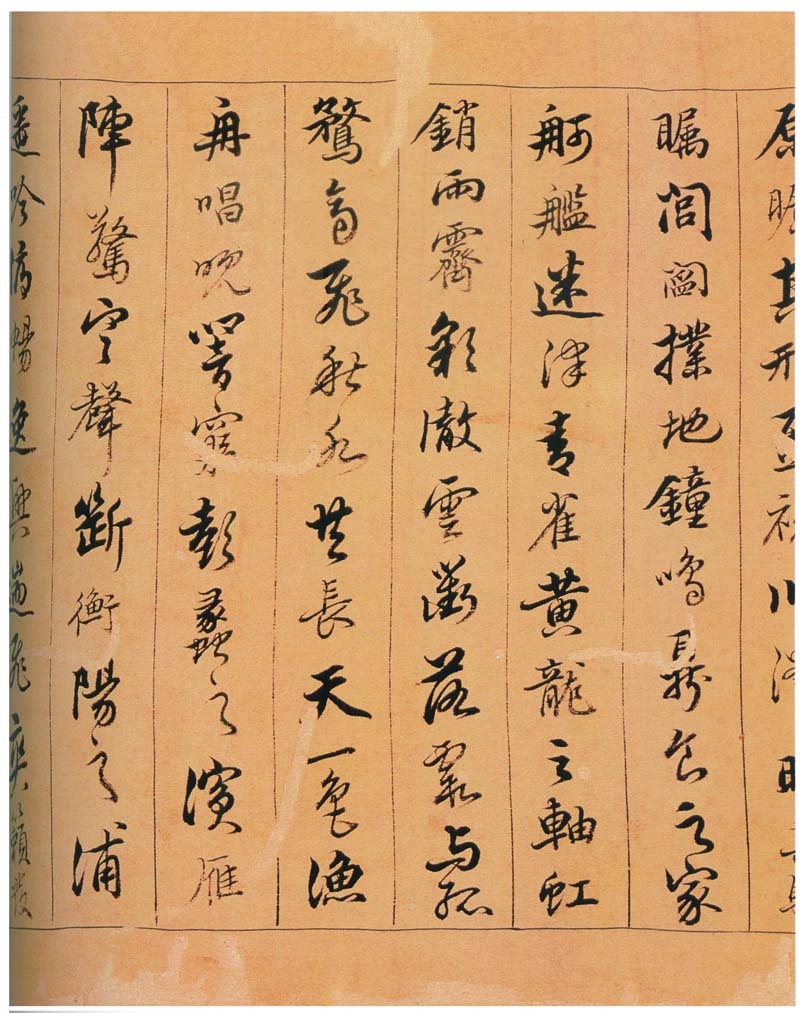 原曠其視川澤盱其駭
矚閭閻撲地鐘鳴鼎食之家
舸艦迷津青雀黃龍之軸虹
銷雨霽彩徹雲衢落霞与孤
鶩齊飛秋水共長天一色漁
舟唱晚響窮彭蠡之濱雁
陣驚寒聲斷衡陽之浦
遥吟俯暢逸興遄飛爽籟發